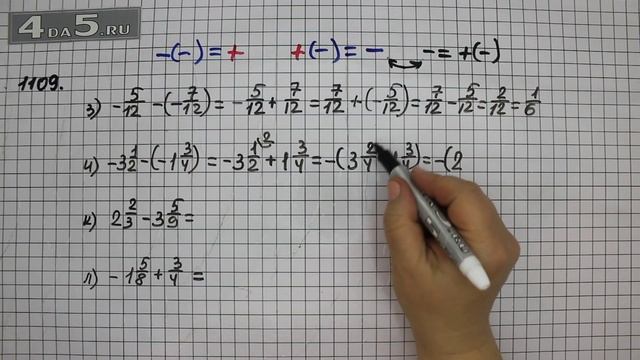 4 DA 5.RU
-(-)=+ +(-)=- -=+(-)
1109.
з) -5/12 -(-7/12) = -5/12 + 7/12 = 7/12 + (-5/12) = 7/12 - 5/12 = 2/12 = 1/6
и) -3 1/2 -(-1 3/4) = -3 1/2 (2 + 1 3/4 = -(3 2/4 1 3/4) = -(2
к) 2 2/3 - 3 5/9 =
л) -1 5/8 + 3/4 =